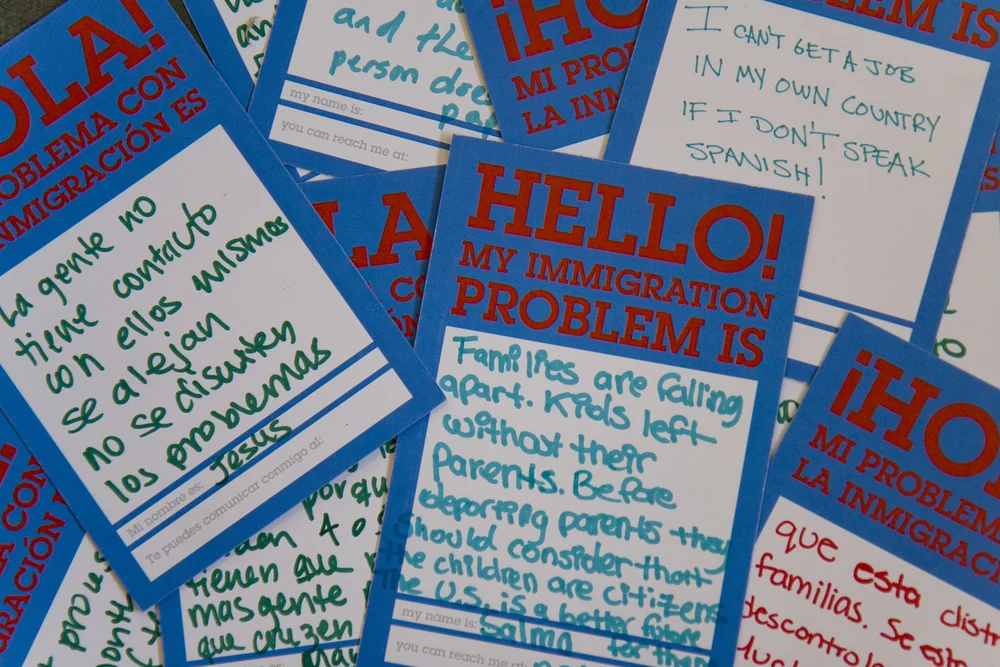 OLA!
ROBLEMA CON
NMIGRACIÓN ES
La gente no
tiene contacto
con ellos mismos
se alejan
no se discuten
los problemas
Mi nombre es: Jesus
Te puedes comunicar conmigo al:
and the
person
my name is:
you can reach me at:
¡HO
MI PRO
LA INM
BLEM IS
I CAN'T GET A JOB
IN MY OWN COUNTRY
IF I DON'T SPEAK
SPANISH!
LA
HELLO!
MY IMMIGRATION
PROBLEM IS
Families are falling
apart. Kids left
without their
parents. Before
deporting parents they
should consider that
the children are citizens
The U.S. is a better future
my name is: Salma for them
you can reach me at:
¡HO
MI PROBLEM
LA INMIGRACI
que esta
familias. Se es
descontrol
tienen que
mas gente
que cruzen
A CON
RACIÓN